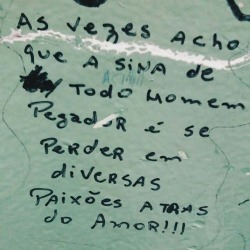 AS VEZES ACHO
QUE A SINA DE
TODO HOMEM
PEGADOR É SE
PERDER EM
DIVERSAS
PAIXÕES ATRAS
DO AMOR!!!